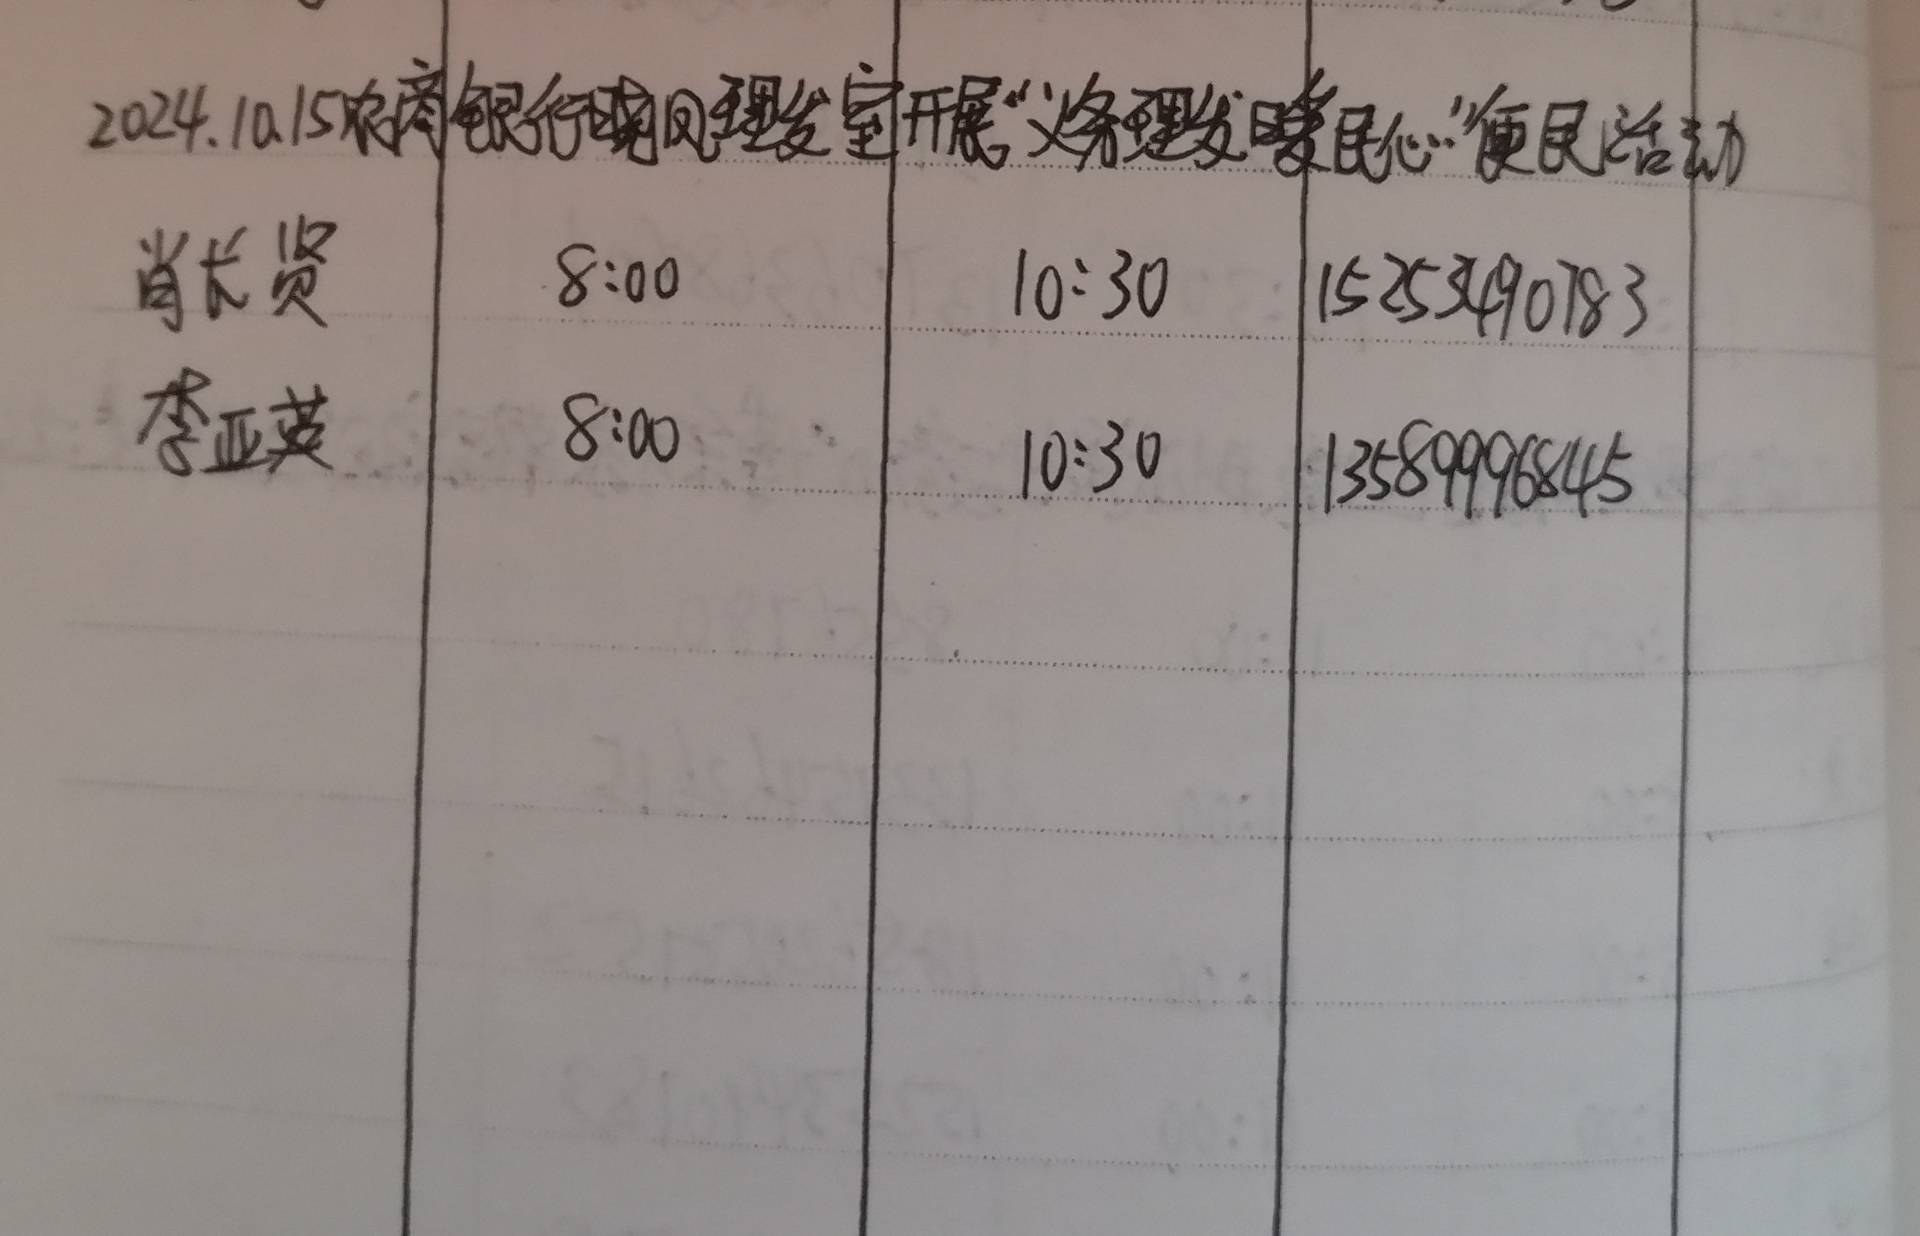 2024.10.15农商银行晓风理发室开展“义务理发暖民心”便民活动
肖长贤 8:00 10:30 15253490783
李亚英 8:00 10:30 13589996845